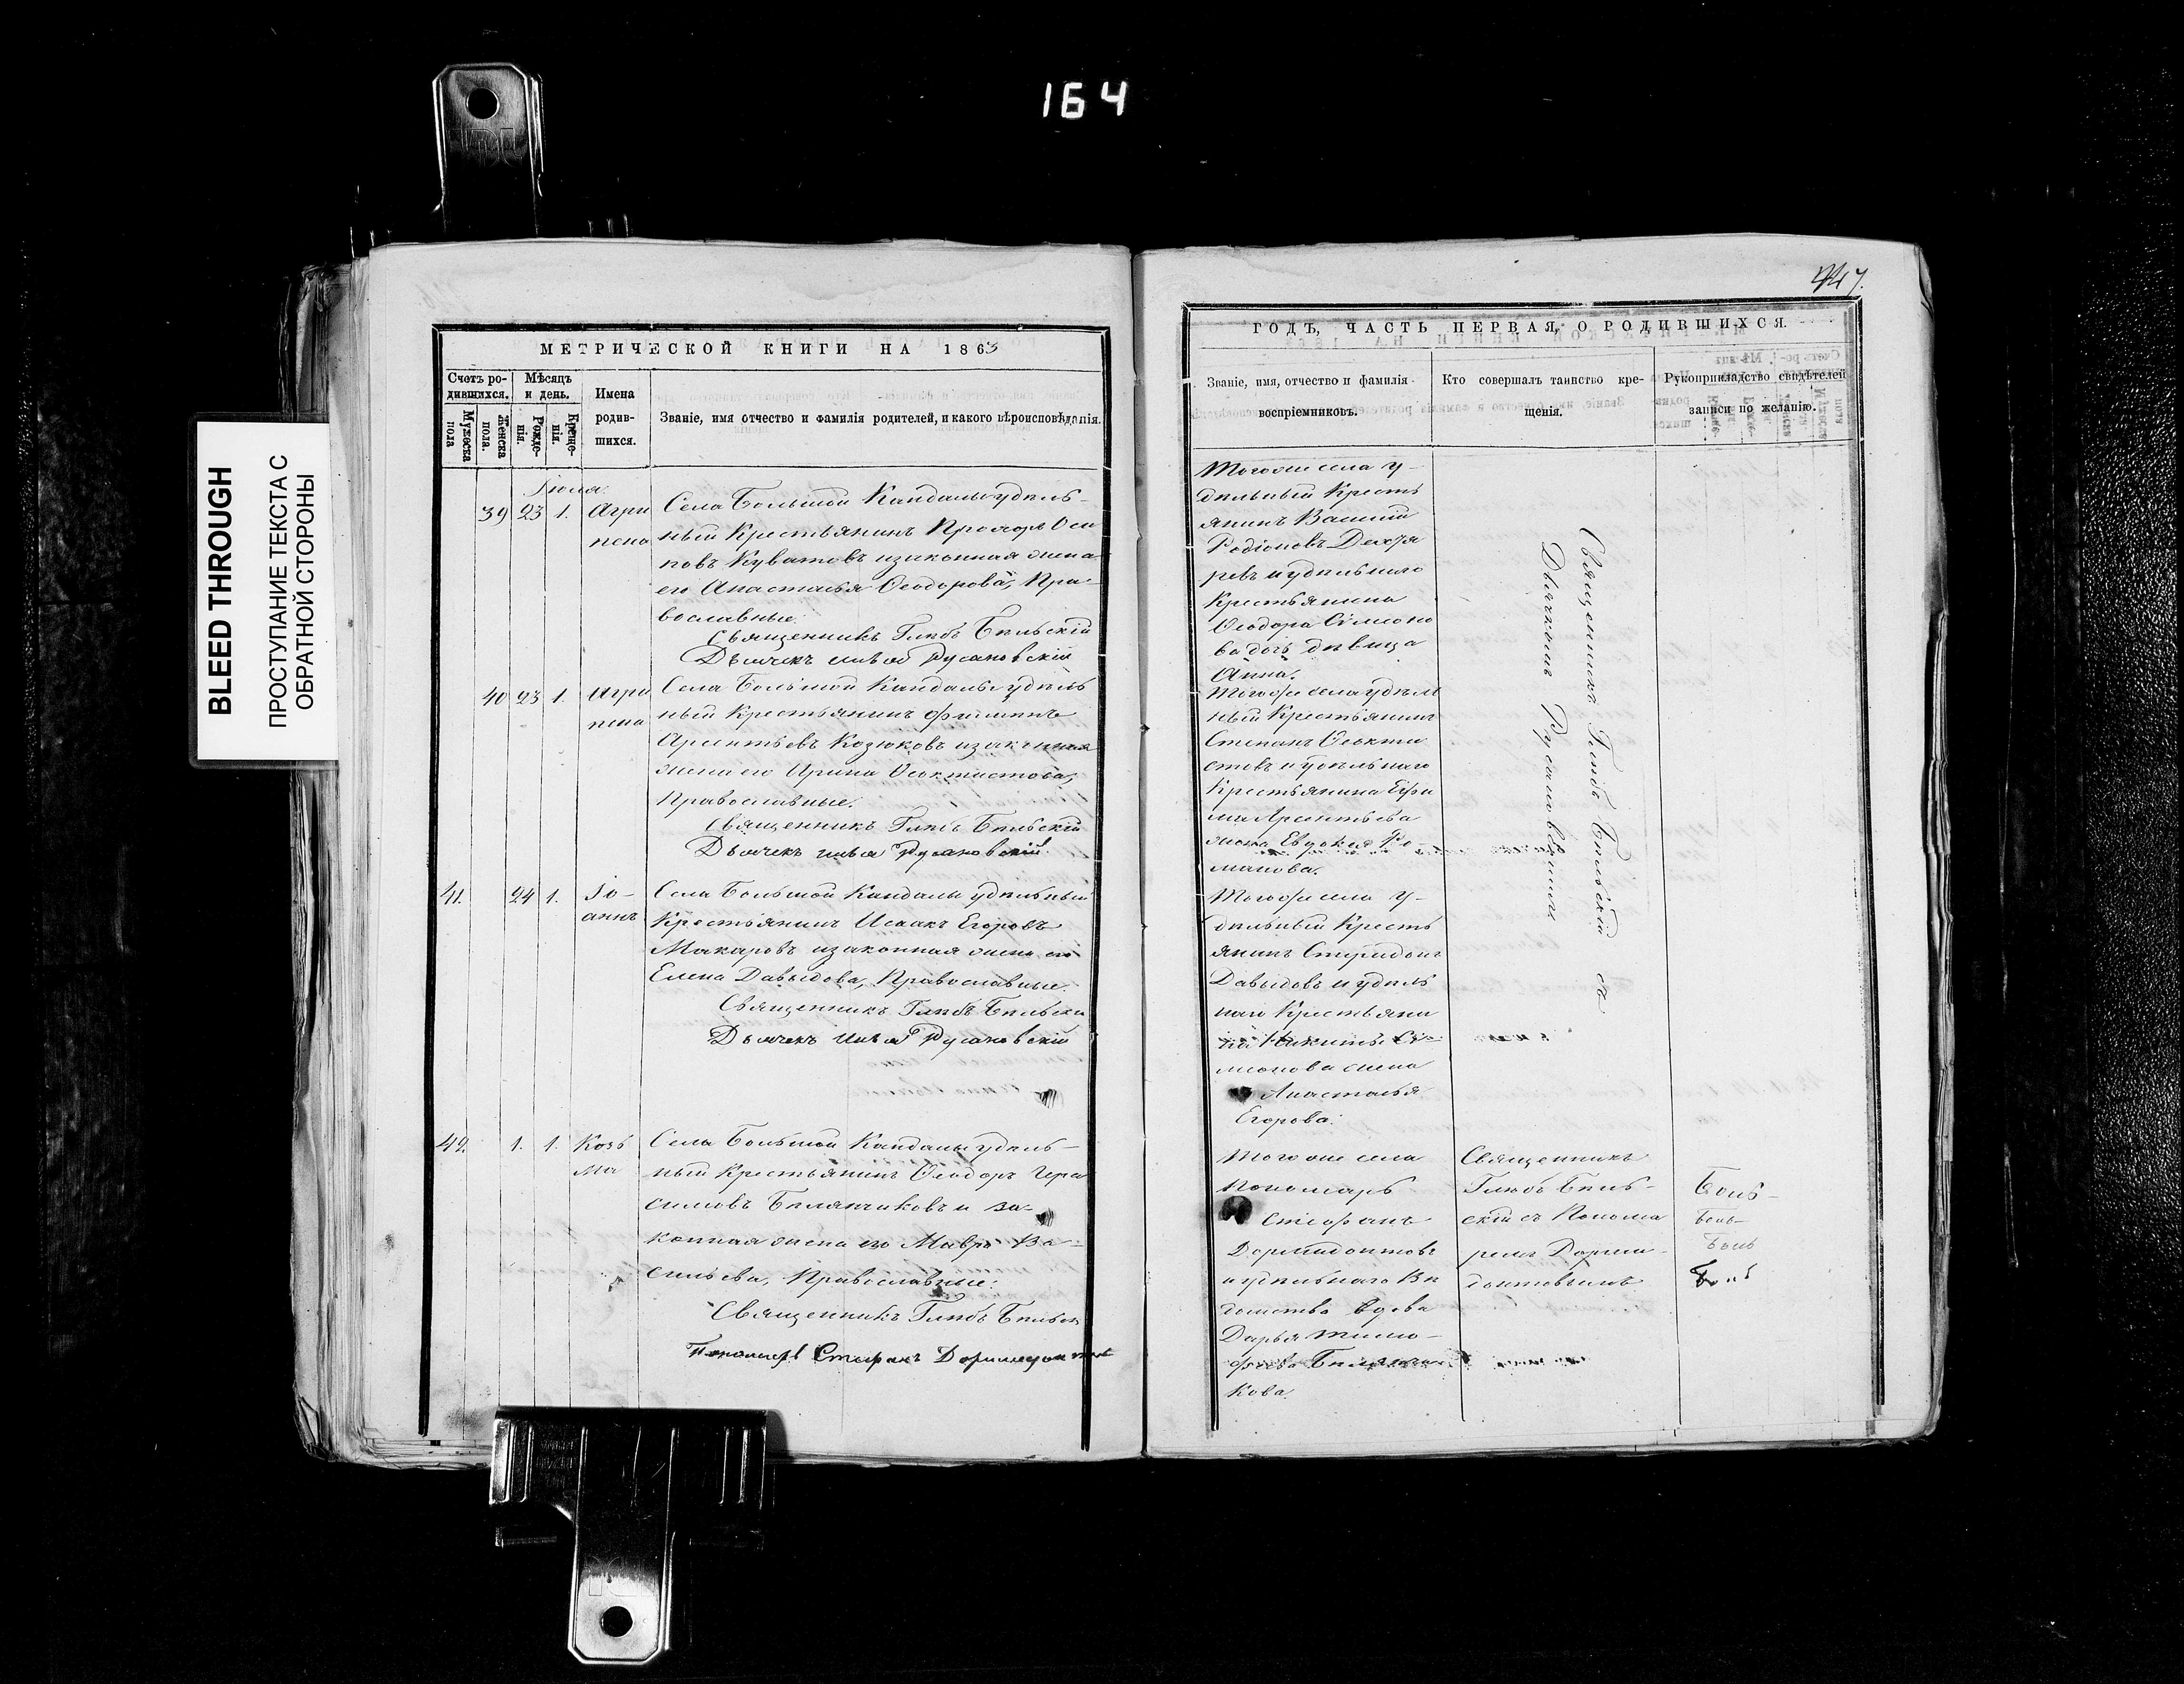 164
BLEED THROUGH
ПРОСТУПАНИЕ ТЕКСТА С
ОБРАТНОЙ СТОРОНЫ
МЕТРИЧЕСКОЙ КНИГИ НА 1863
Счетъ ро-
дившихся.
Мѣсяцъ
и день.
Мужеска
пола
Женска
пола.
Рожде-
нія.
Креще-
нія.
Имена
родив-
шихся.
Званіе, имя отчество и фамилія родителей, и какого вѣроисповѣданія.
39 23 1. Агри
пена
Села Большой Кандалы удѣль-
ный Крестьянинъ Прохоръ Оси
повъ Куватовъ и законная жена
его Анастасья Ѳеодорова, Пра-
вославные.
Священникъ Глѣбъ Бѣльскій
Дьячекъ Илья Русановскій
40 23 1. Агри
пена
Села Большой Кандалы удѣль
ный Крестьянинъ Филиппъ
Арсентьевъ Козюковъ и законная
жена его Ирина Ѳеоктистова,
Православные.
Священникъ Глѣбъ Бѣльскій
Дьячекъ Илья Русановскій.
41. 24 1. Іо-
аннъ
Села Большой Кандалы удѣльный
Крестьянинъ Исаакъ Егоровъ
Макаровъ и законная жена его
Елена Давыдова, Православные.
Священникъ Глѣбъ Бѣльскі
Дьячекъ Илья Русановскій
42. 1. 1. Козь
ма
Села Большой Кандалы удѣль-
ный Крестьянинъ Ѳеодоръ Гера
симовъ Бѣлянчиковъ и за-
конная жена его Мавра Ва-
сильева, Православные.
Священникъ Глѣбъ Бѣльск
Пономарь Стефанъ
447.
ГОДЪ, ЧАСТЬ ПЕРВАЯ, О РОДИВШИХСЯ.
Званіе, имя, отчество и фамилія
воспріемниковъ.
Кто совершалъ таинство кре-
щенія.
Рукоприкладство свидѣтелей
записи по желанію.
Тогоже села у-
дѣльный Кресть
янинъ Василій
Родіоновъ
ревъ и удѣльнаго
Крестьянина
Ѳеодора Сімеоно
ва дочь дѣвица
Анна.
Тогоже села удѣль
ный Крестьянинъ
Степанъ Ѳеокти
стовъ и удѣльнаго
Крестьянина Ефи
ма Арсентьева
жена Евдокія Ро
манова.
Тогоже села у-
дѣльный Кресть
янинъ Спиридонъ
Давыдовъ и удѣль
наго Крестьяни
на Никиты Сі-
меонова жена
Анастасья
Егорова.
Тогоже села
Пономарь
Стефанъ
Дормидонтовъ
и удѣльнаго Вѣ
домства вдова
Дарья Тимо-
фѣева Бѣлянчи
кова.
Священникъ Глѣбъ Бѣльскій съ
Дьячкомъ Русановскимъ
Священникъ
Глѣбъ Бѣль-
скій съ Понома
ремъ Дорми-
донтовымъ